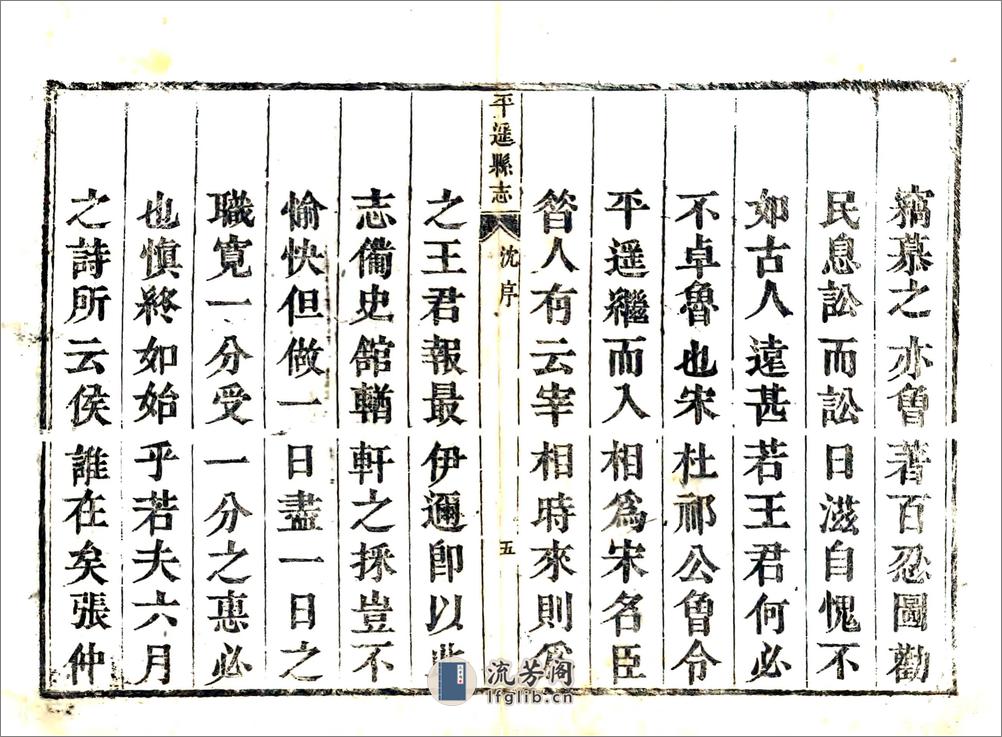 竊慕之亦曾著百忍圖勸
民息訟而訟日滋自愧不
如古人遠甚若王君何必
不卓魯也宋杜祁公曾令
平遥繼而入相為宋名臣
昔人有云宰相時來則爲
平遥縣志
沈序
五
之王君報最伊邇卽以此
志備史館輶軒之採豈不
愉快但做一日盡一日之
職寬一分受一分之惠必
也慎終如始乎若夫六月
之詩所云侯誰在矣張仲
流芳阁
lfglib.cn